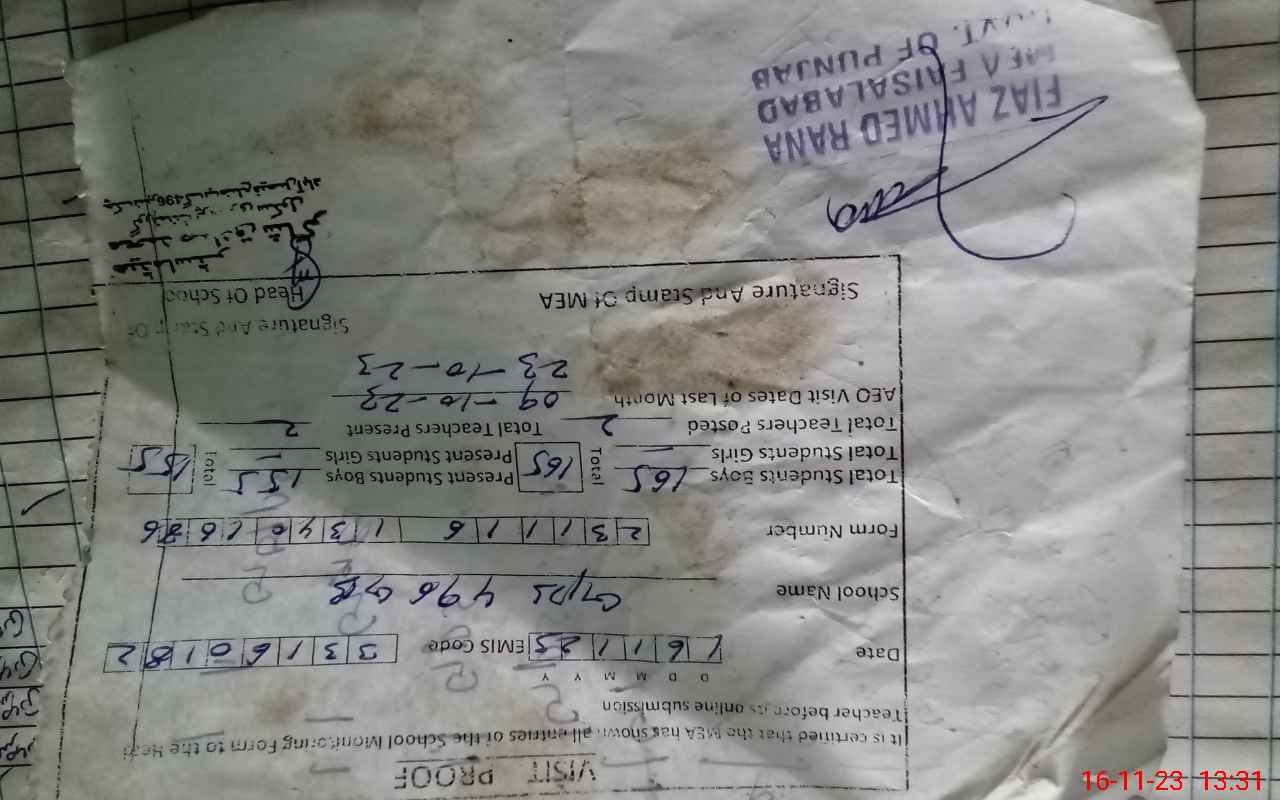 VISIT PROOF
It is certified that the MEA has shown all entries of the School Monitoring Form to the Head
Teacher before its online submission
D D M M Y Y
Date 1 6 1 1 2 3 EMIS Code 3 3 1 6 0 1 8 2
School Name GPS 496 GB
Form Number 2 3 1 1 1 6 1 3 4 0 1 6 8 6
Total Students Boys 165 Total 165 Present Students Boys 155 Total 155
Total Students Girls — Present Students Girls —
Total Teachers Posted 2 Total Teachers Present 2
AEO Visit Dates of Last Month 09-10-23
23-10-23
Signature And Stamp Of
Signature And Stamp Of MEA Head Of School
FIAZ AHMED RANA
MEA FAISALABAD
GOVT. OF PUNJAB
16-11-23 13:31